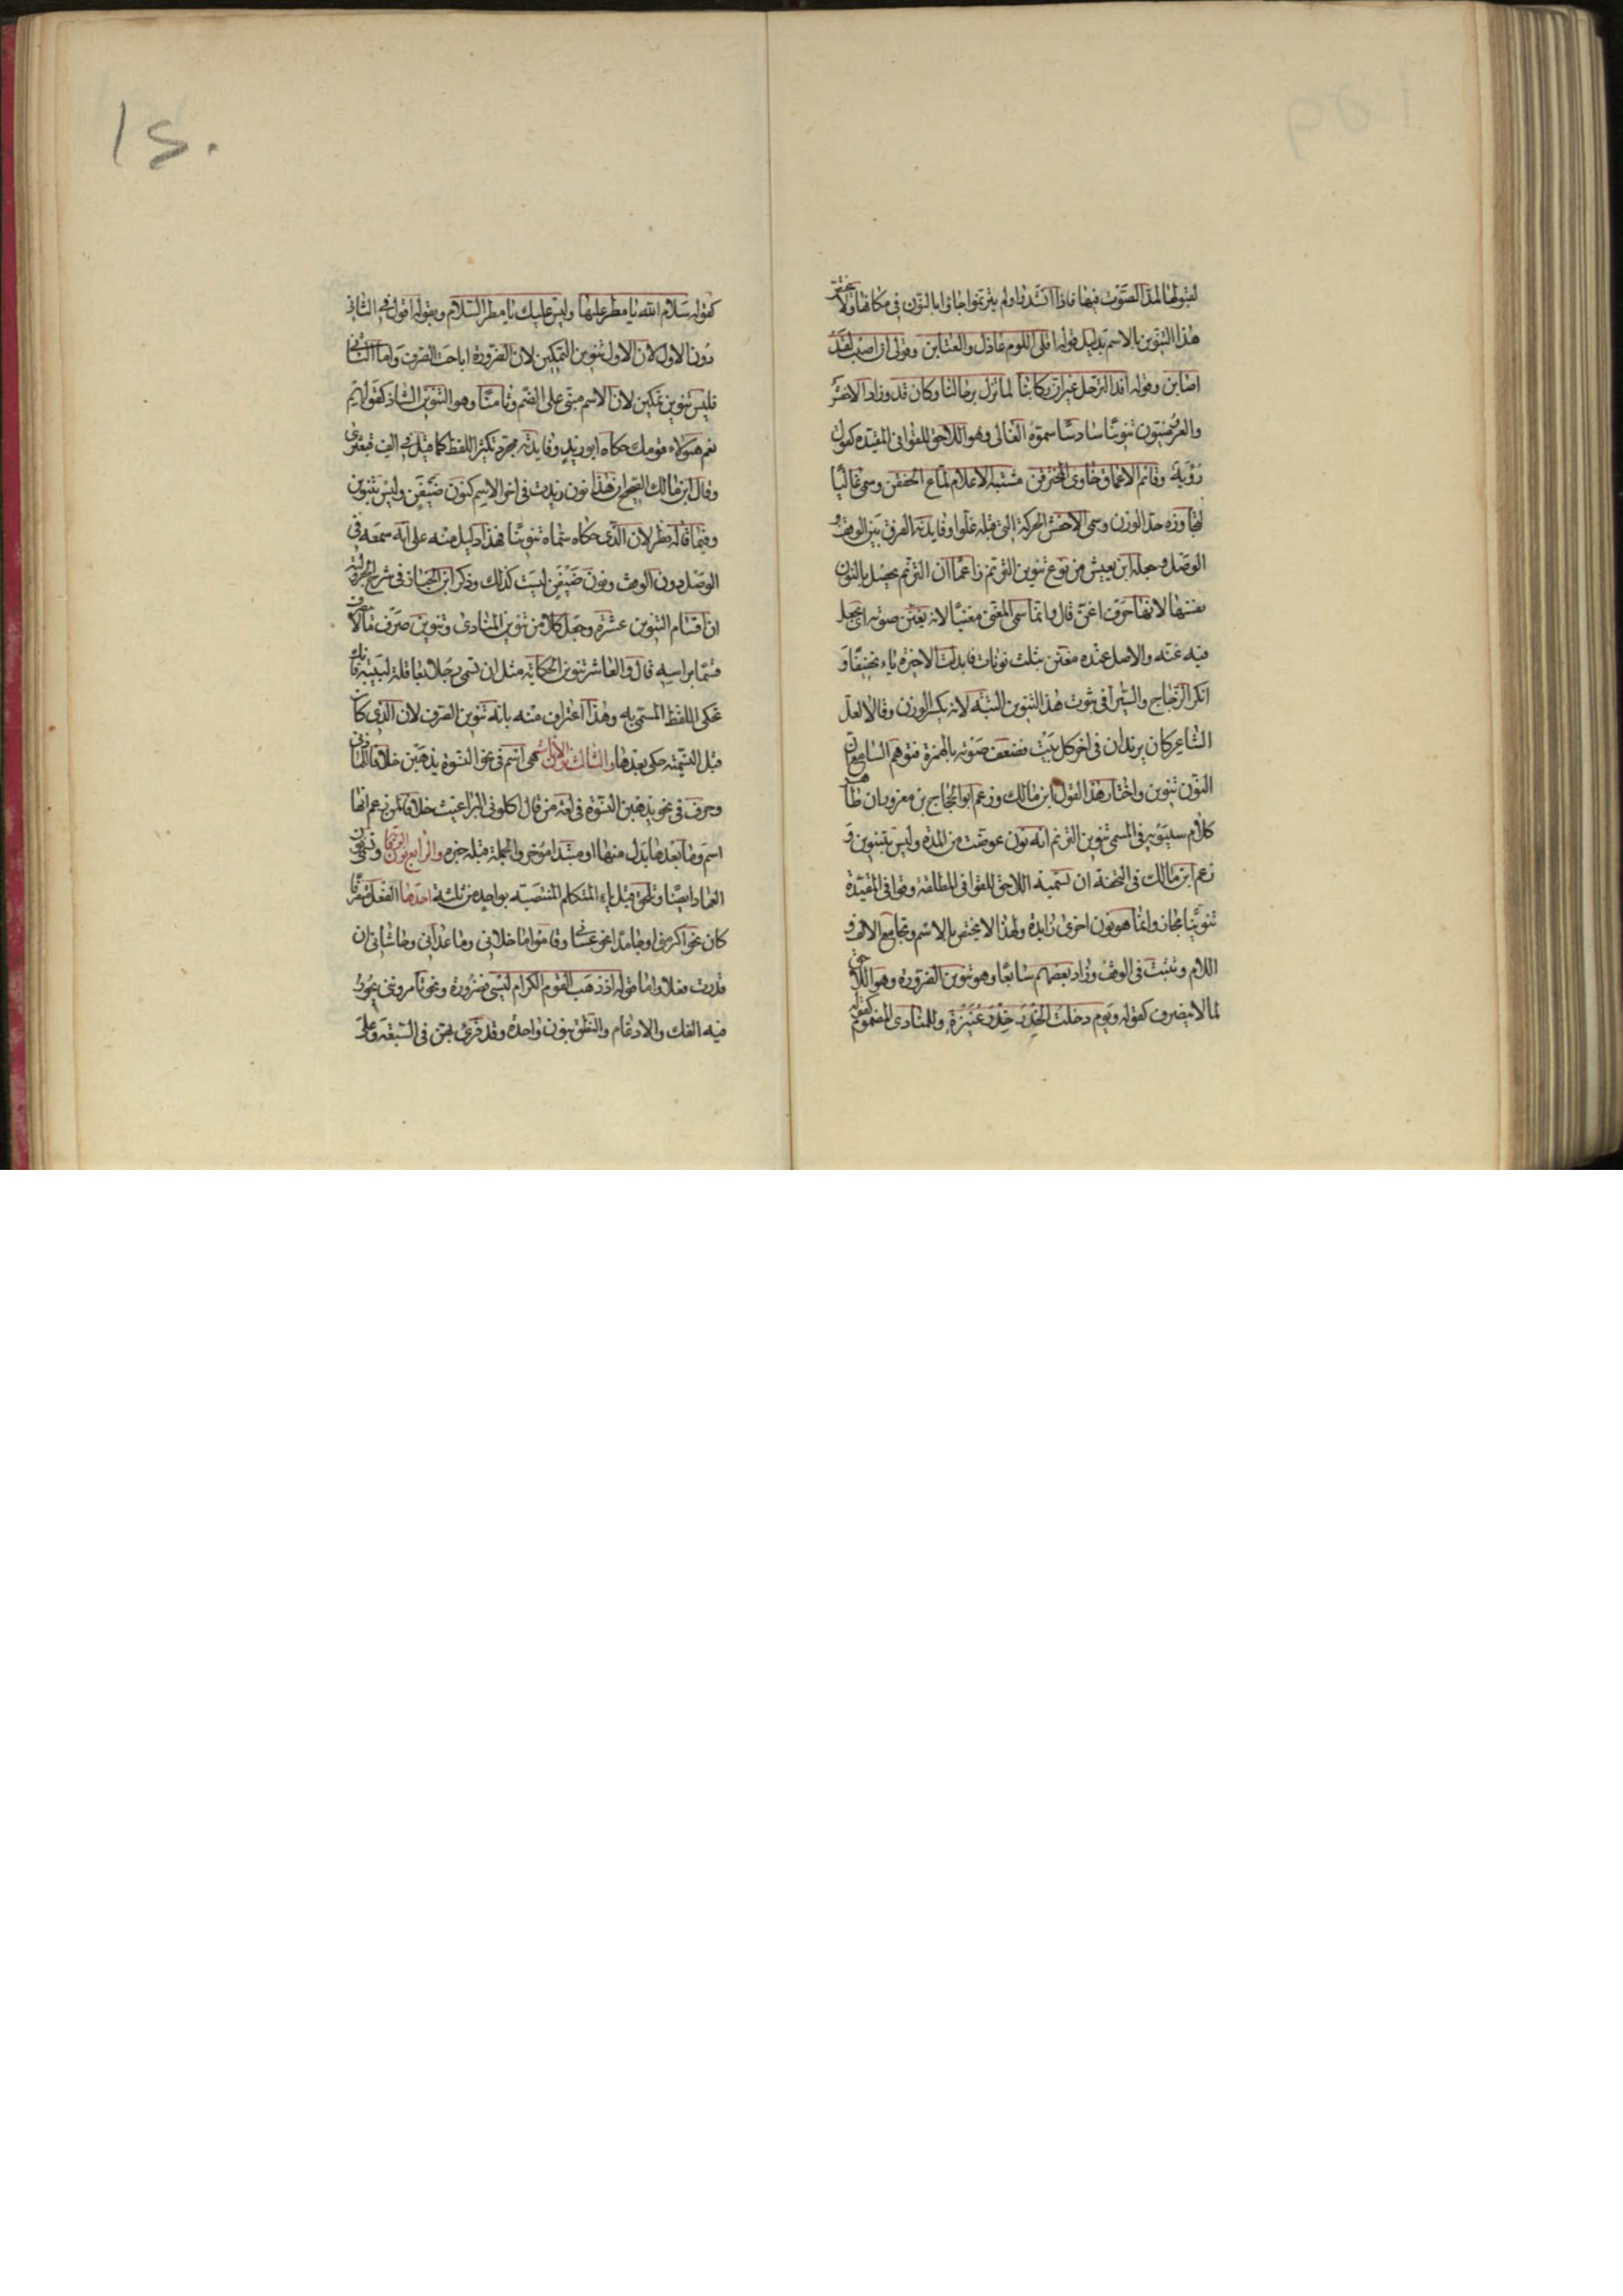 لقبولها لمد الصوت فيها فاذا انشدوا ولم يترنموا جاؤا بالنون في مكانها ولا يختص
هذا التنوين بالاسم بدليل قوله اقلي اللوم عاذل والعتابن وقولي ان اصبت لقد
اصابن وقوله افد الترحل غير ان ركابنا لما تزل برحالنا وكان قدن وزاد الاخفش
والعروضيون تنوينا سادسا سموه الغالى وهو اللاحق للقوافى المقيده كقول
رؤبة وقاتم الاعماق خاوى المخترقن مشتبه الاعلام لماع الخفقن وسمى غاليا
لتجاوزه حد الوزن وسمى الاخفش الحركة التى قبله غلوا وفايدته الفرق بين الوقف و
الوصل وجعله ابن يعيش من نوع تنوين الترنم زاعما ان الترنم يحصل بالنون
نفسها لانها حرف اغن قال وانما سمى المغنى مغنيا لانه يغنن صوته اى يجعل
فيه غنه والاصل عنده مغنن بثلث نونات فابدلت الاخيرة ياء تخفيفا و
انكر الزجاج والسيرافى ثبوت هذا التنوين البته لانه يكسر الوزن وقالا لعل
الشاعر كان يزيد ان فى اخر كل بيت فضعف صوته بالهمزة فتوهم السامع ان
النون تنوين واختار هذا القول ابن مالك وزعم ابو الحجاج بن معزوز ان ظاهر
كلام سيبويه فى المسمى تنوين الترنم انه نون عوضت من المدة وليس بتنوين و
زعم ابن مالك فى التحفة ان تسمية اللاحق للقوافى المطلقة وقوافى المقيدة
تنوينا مجاز وانما هو نون اخرى زايدة ولهذا لا يختص بالاسم وتجامع الالف و
اللام وتثبت فى الوقف وزاد بعضهم سابعا وهو تنوين الضرورة وهو اللاحق
لما لا ينصرف كقوله ويوم دخلت الخدر خدر عنيزة وللمنادى المضموم كقوله
كقوله سلام الله يا مطر عليها وليس عليك يا مطر السلام وبقوله اقول فى الثانى
دون الاول لان الاول تنوين التمكين لان الضرورة اباحت الصرف واما الثانى
فليس تنوين تمكين لان الاسم مبنى على الضم وثامنا وهو التنوين الشاذ كقولهم
نعم هؤلاء قومك حكاه ابو زيد وفايدته مجرد تكثير اللفظ كما قيل فى الف قبعثرى
وقال ابن مالك الصحيح ان هذا نون زيدت فى اخر الاسم كنون ضيفن وليس بتنوين
وفيما قاله نظر لان الذى حكاه سماه تنوينا فهذا دليل منه على انه سمعه فى
الوصل دون الوقف ونون ضيفن ليست كذلك وذكر ابن الخباز فى شرح الجزولية
ان اقسام التنوين عشرة وجعل كلا من تنوين المنادى وتنوين صرف ما لا ينصرف
قسما براسه قال والعاشر تنوين الحكاية مثل ان تسمى رجلا بعاقلة لبيبة فانك
تحكى اللفظ المسمى به وهذا اعتراف منه بانه تنوين الصرف لان الذى كان
قبل التسمية حكى بعدها والثالث نون الاناث هى اسم فى نحو النسوة يذهبن خلافا للمازنى
وحرف فى نحو يذهبن النسوة فى لغة من قال اكلونى البراغيث خلافا لمن زعم انها
اسم وما بعدها بدل منها او مبتدا مؤخر والجملة قبله خبره والرابع نون الوقاية وتسمى نون
العماد ايضا وتلحق قبل ياء المتكلم المنتصبة بواحد من ثلثة احدها الفعل متصرفا
كان نحو اكرمنى او جامدا نحو عسانى وقاموا ما خلانى وما عدانى وحاشانى ان
قدرت فعلا واما قوله اذ ذهب القوم الكرام ليسى فضرورة ونحو تامروننى يجوز
فيه الفك والادغام والنطق بنون واحدة وقد قرئ بهن فى السبعة وعلى